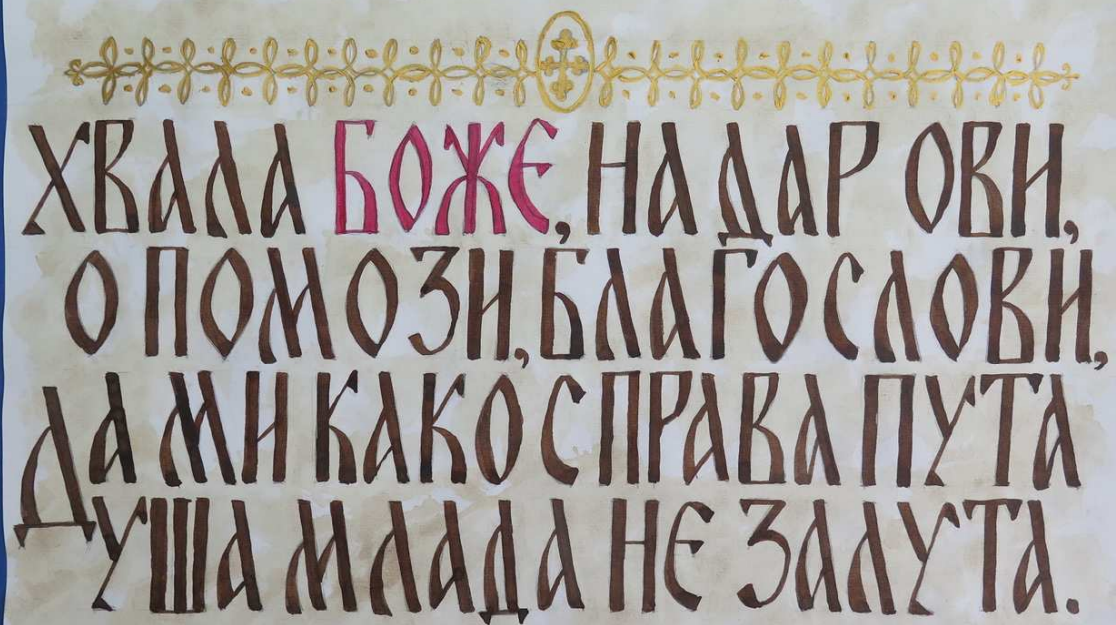 ХВАЛА БОЖЕ, НА ДАР ОВИ,
ОПОМОЗИ, БЛАГОСЛОВИ,
ДА МИ КАКО СПРАВА ПУТА
ДУША МЛАДА НЕ ЗАЛУТА.